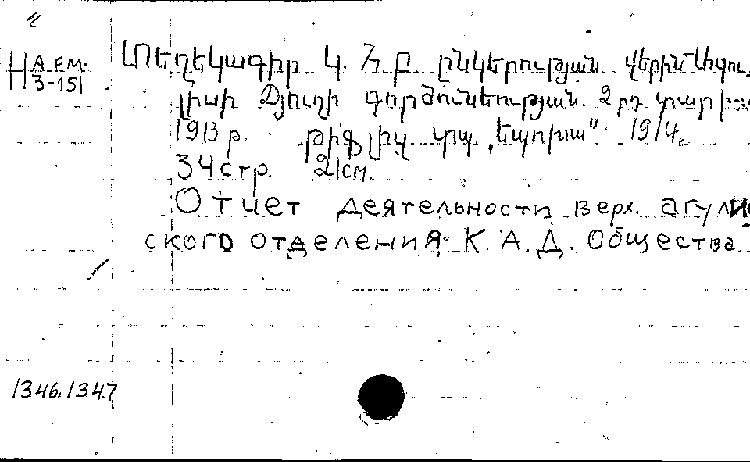 А.ЕМ.
Н 3-151
Տեղեկագիր Կ. Հ. Բ. ընկերության վերին Ագու
լիսի Ճյուղի գործունեության 2 րդ տարի
1913 թ. Թիֆլիս տպ. „Էպոխա“ 1914
34 стр. 21см.
Отчет деятельности верх. агули
ского отделения К. А. Д. Общества
1346.1347